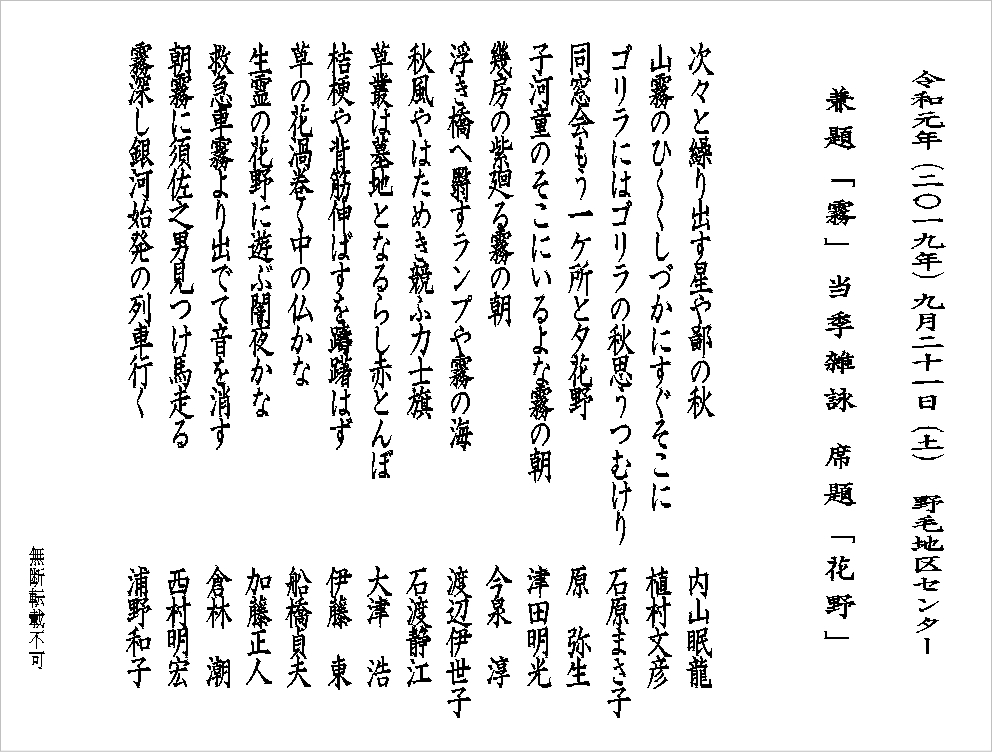 令和元年（二〇一九年）九月二十一日（土）　野毛地区センター
兼題「霧」当季雑詠　席題「花野」
次々と繰り出す星や鄙の秋　内山眠龍
山霧のひくくしづかにすぐそこに　植村文彦
ゴリラにはゴリラの秋思うつむけり　石原まさ子
同窓会もう一ケ所と夕花野　原　弥生
子河童のそこにいるよな霧の朝　津田明光
幾房の紫廻る霧の朝　今泉　淳
浮き橋へ翳すランプや霧の海　渡辺伊世子
秋風やはためき競ふ力士旗　石渡静江
草叢は墓地となるらし赤とんぼ　大津　浩
桔梗や背筋伸ばすを躊躇はず　伊藤　東
草の花渦巻く中の仏かな　船橋貞夫
生霊の花野に遊ぶ闇夜かな　加藤正人
救急車霧より出でて音を消す　倉林　潮
朝霧に須佐之男見つけ馬走る　西村明宏
霧深し銀河始発の列車行く　浦野和子
無断転載不可